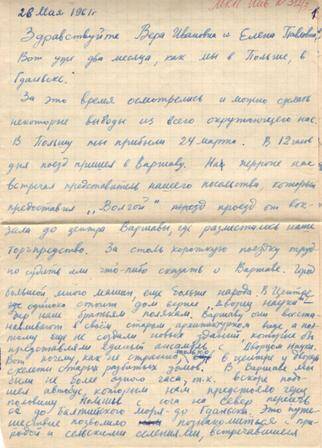 28 Мая 1961г
1
Здравствуйте Вера Ивановна и Елена Павловна!
Вот уже два месяца, как мы в Польше, в
Гданьске.
За это время осмотрелись и можно сделать
некоторые выводы из всего окружающего нас.
В Польшу мы прибыли 24 марта. В 12 часов
дня поезд пришел в Варшаву. На перроне нас
встречал представитель нашего посольства, который
предоставил „Волгой" проезд от вок-
зала до центра Варшавы, где разместилось наше
торгпредство. За столь короткую поездку труд-
но судить или что-либо сказать о Варшаве. Город
большой много машин еще больше народа. В Центре
где одиноко стоит дом "дворец науки"
дар наш братьям полякам. Варшаву они восста-
навливают в своем старом архитектурном виде, а по-
этому еще не создали новых зданий которые бы
представляли единый ансамбль с Дворцом науки.
Вот почему, как не странно, только в центре у Дворца
скелеты старых развитых домов. В Варшаве мы
были не более одного часа, т.к. вскоре подо-
шел автобус, которым нам предстояло через
половину Польши с юга на север переехать
её до Балтийского моря - до Гданьска. Это путе-
шествие позволило познакомиться с при-
родой и сельскими селениями, встречавшимися